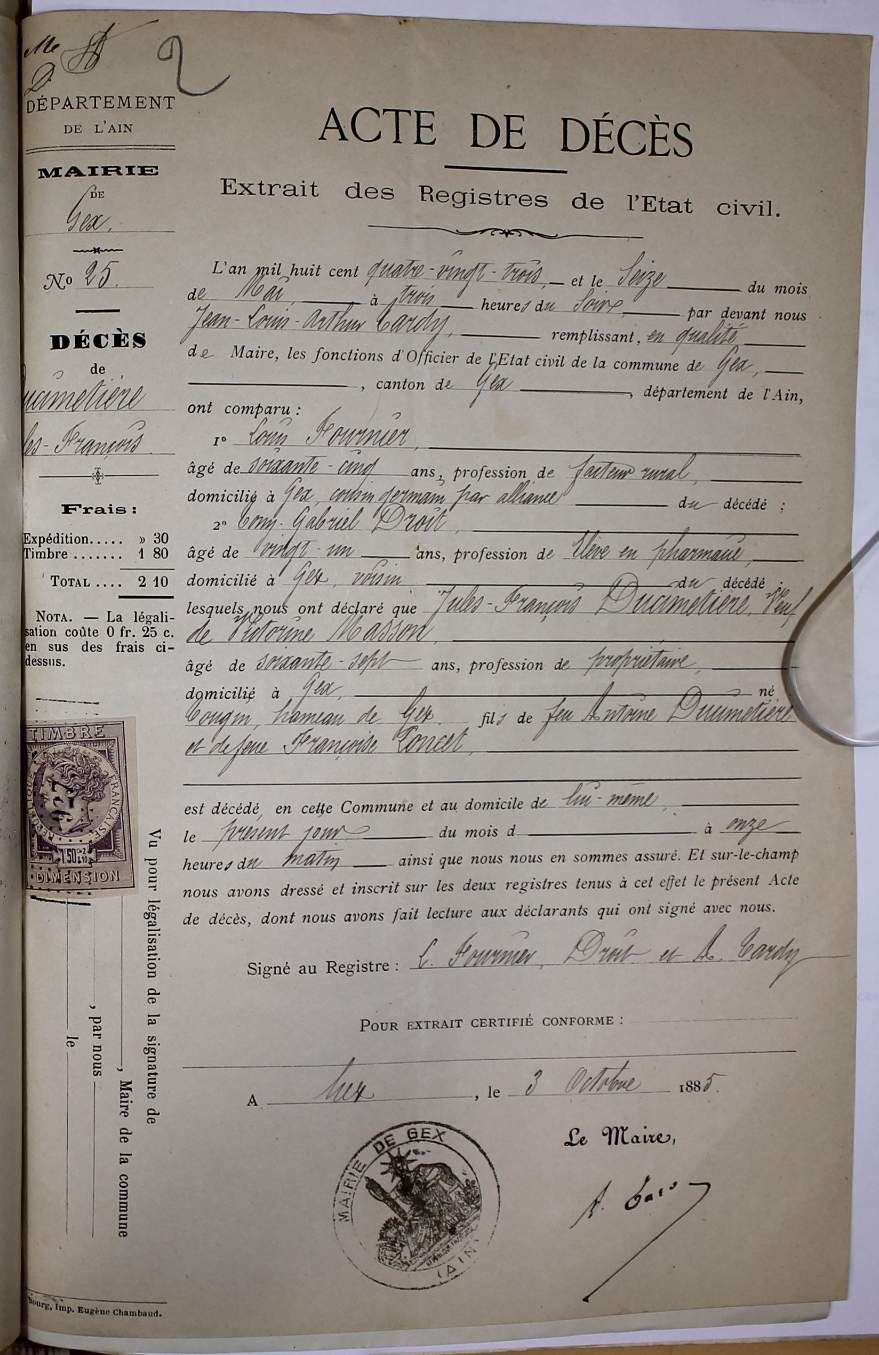 2
DÉPARTEMENT
DE L'AIN
MAIRIE
DE
Gex.
No 25.
DÉCÈS
de
Ducimetière
les-François
Frais :
Expédition..... » 30
Timbre ....... 1 80
TOTAL .... 2 10
NOTA. — La légali-
sation coûte 0 fr. 25 c.
en sus des frais ci-
dessus.
TIMBRE
RÉPUBLIQUE FRANÇAISE
DIMENSION
Vu pour légalisation de la signature de
, Maire de la commune
, par nous
le
Bourg, Imp. Eugène Chambaud.
ACTE DE DÉCÈS
Extrait des Registres de l'Etat civil.
L'an mil huit cent quatre-vingt-trois, et le Seize du mois
de Mai, à trois heures du Soir par devant nous
Jean-Louis-Arthur Tardy, remplissant, en qualité
de Maire, les fonctions d'Officier de l'Etat civil de la commune de Gex,
, canton de Gex , département de l'Ain,
ont comparu :
1o Louis Fournier,
âgé de soixante-cinq ans, profession de facteur rural,
domicilié à Gex, cousin germain par alliance du décédé ;
2o Gabriel Droit,
âgé de vingt-un ans, profession de Elève en pharmacie,
domicilié à Gex, voisin du décédé ;
lesquels nous ont déclaré que Jules-François Ducimetière, Veuf
de Victorine Masson,
âgé de soixante-sept ans, profession de propriétaire,
domicilié à Gex, né
Tougin, hameau de Gex fils de feu Antoine Ducimetière
et de feue Françoise Poncet,
est décédé, en cette Commune et au domicile de lui-même,
le présent jour du mois d à onze
heures du matin ainsi que nous nous en sommes assuré. Et sur-le-champ
nous avons dressé et inscrit sur les deux registres tenus à cet effet le présent Acte
de décès, dont nous avons fait lecture aux déclarants qui ont signé avec nous.
Signé au Registre : L. Fournier, Droit et A. Tardy
POUR EXTRAIT CERTIFIÉ CONFORME :
A Gex , le 3 Octobre 1885.
Le Maire,
MAIRIE DE GEX
(AIN)